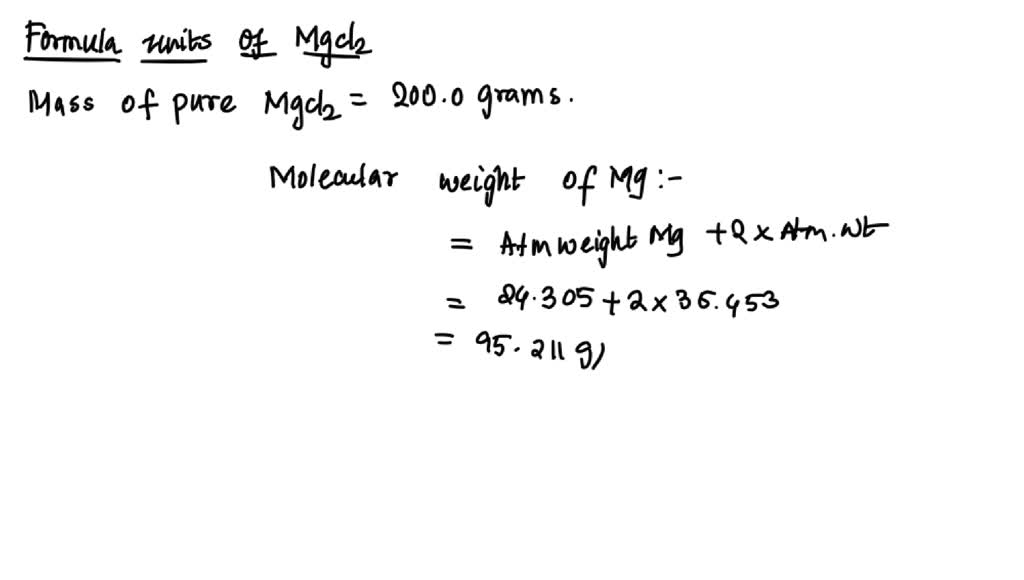 Formula units of Mgcl2
Mass of pure Mgcl2 = 200.0 grams.
Molecular weight of Mg :-
= Atm weight Mg + 2 x Atm. Wt
= 24.305 + 2 x 35.453
= 95.211 g/